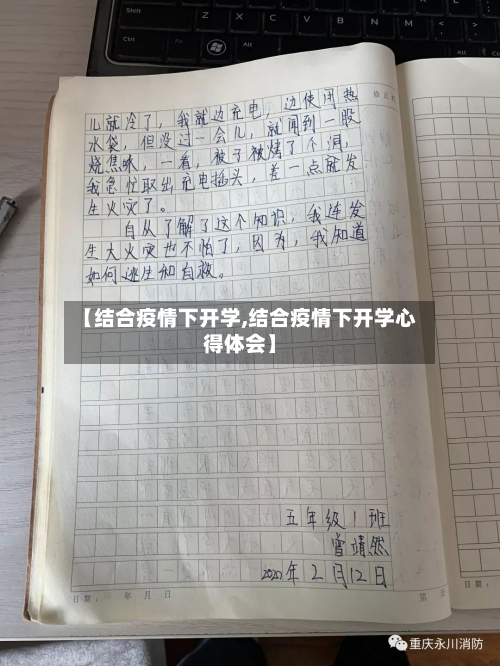 儿就冷了，我就边充电，边使用热
水袋，但没过一会儿，就闻到一股
烧焦味，一看，被子被烤了个洞，
我急忙取出充电插头，差一点就发
生火灾了。
自从了解了这个知识，我连发
生大火灾也不怕了，因为，我知道
如何逃生和自救。
【结合疫情下开学,结合疫情下开学心
得体会】
五年级1班
曾靖然
2020年2月12日
日期： 年 月 日
第
重庆永川消防